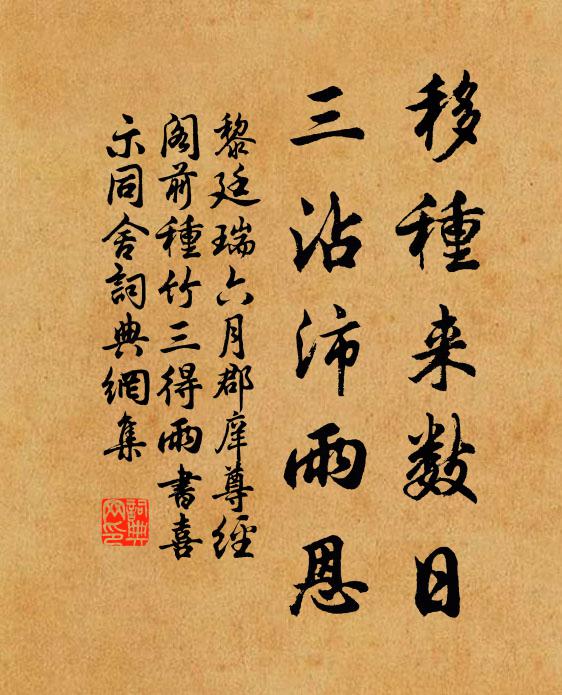 移種来数日
三沾沛雨恩
黎廷瑞六月郡庠尊經
閣前種竹三得雨書喜
示同舍詞典網集
詞典网印